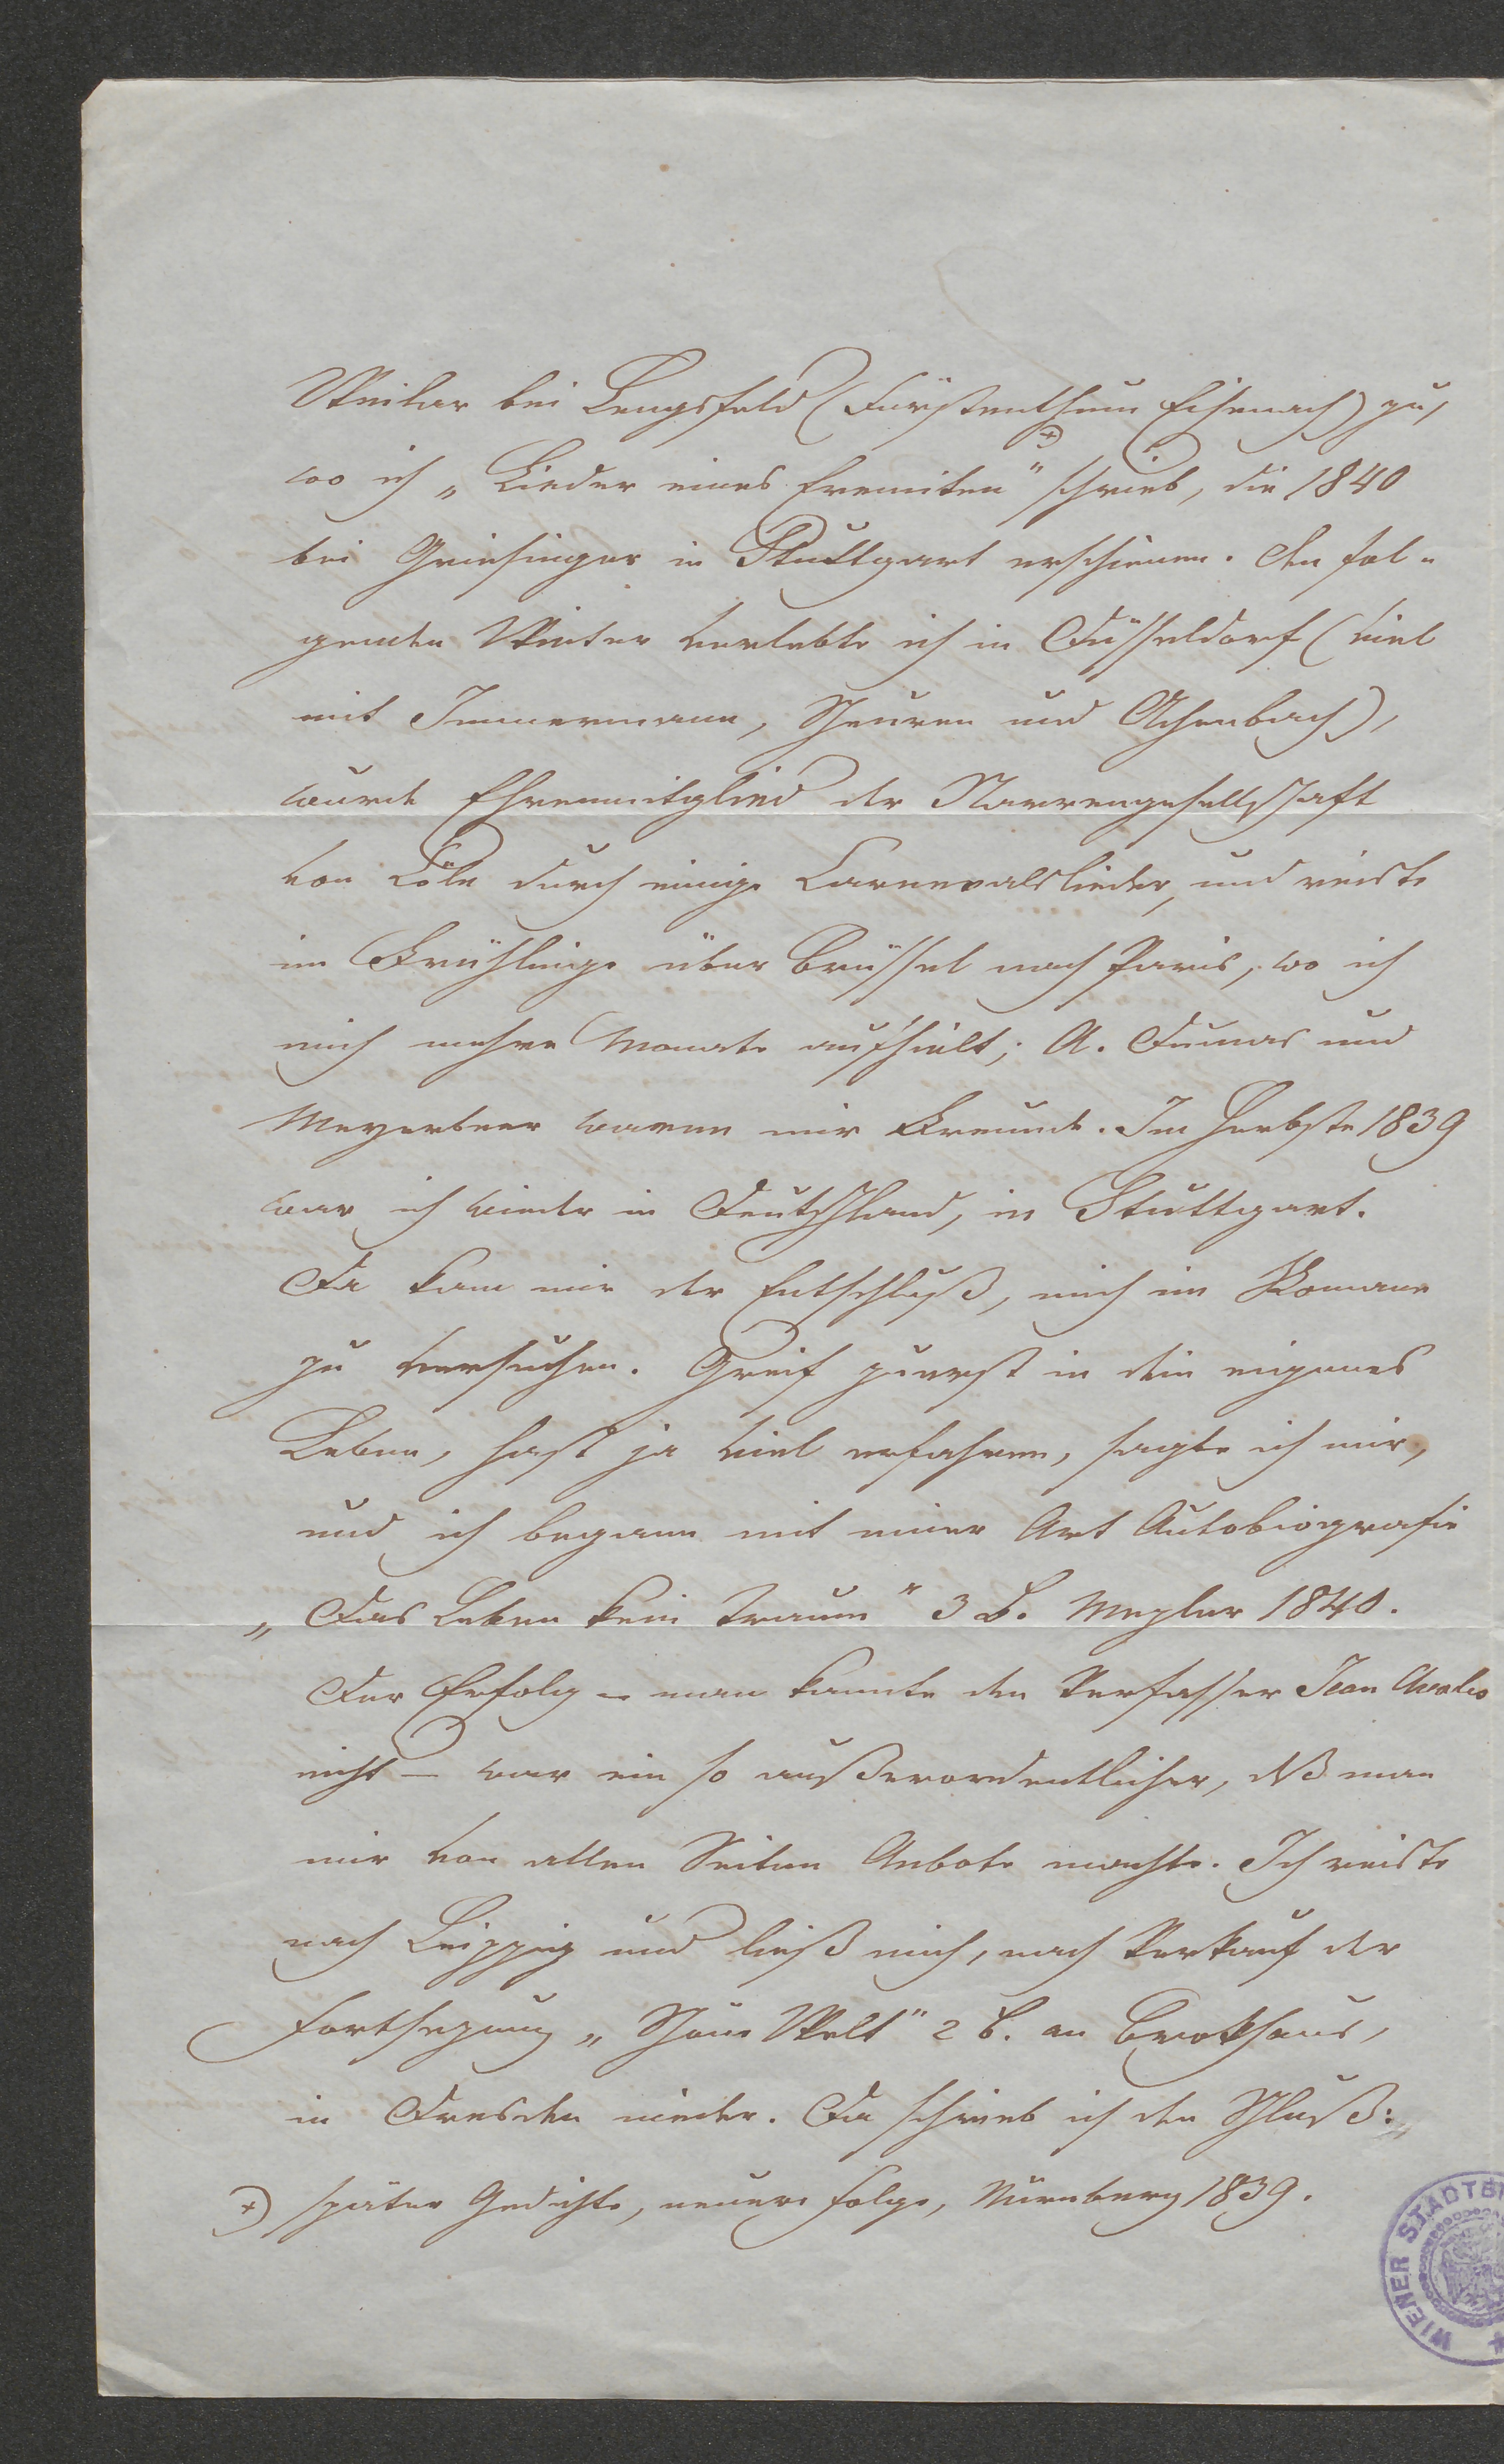 Weilar bei Lengsfeld (Fürstenthum Eisenach) zu,
wo ich „Lieder eines Eremiten" +) schrieb, die 1840
bei Griesinger in Stuttgart erschienen. Den fol-
genden Winter verlebte ich in Düsseldorf (viel
mit Immermann, Scheuren und Achenbach),
wurde Ehrenmitglied der Narrengesellschaft
von Cöln durch einige Carnevalslieder, und reiste
im Frühlinge über Brüssel nach Paris, wo ich
mich mehre Monate aufhielt; A. Dumas und
Meyerbeer waren mir Freunde. Im Herbste 1839
war ich wieder in Deutschland, in Stuttgart.
Da kam mir der Entschluß, mich im Romane
zu versuchen. Greif zuerst in dein eigenes
Leben, hast ja viel erfahren, sagte ich mir,
und ich begann mit einer Art Autobiografie
„Das Leben kein Traum" 3 B. Mezler 1840.
Der Erfolg – man kannte den Verfasser Jean
nicht – war ein so außerordentlicher, dß man
mir von allen Seiten Anbote machte. Ich reiste
nach Leipzig und ließ mich, nach Verkauf der
Fortsezung „Schöne Welt" 2 B. an Brockhaus,
in Dresden nieder. Da schrieb ich den Schluß:
+) später Gedichte, neuere Folge, Nürnberg 1839.
WIENER STADTB